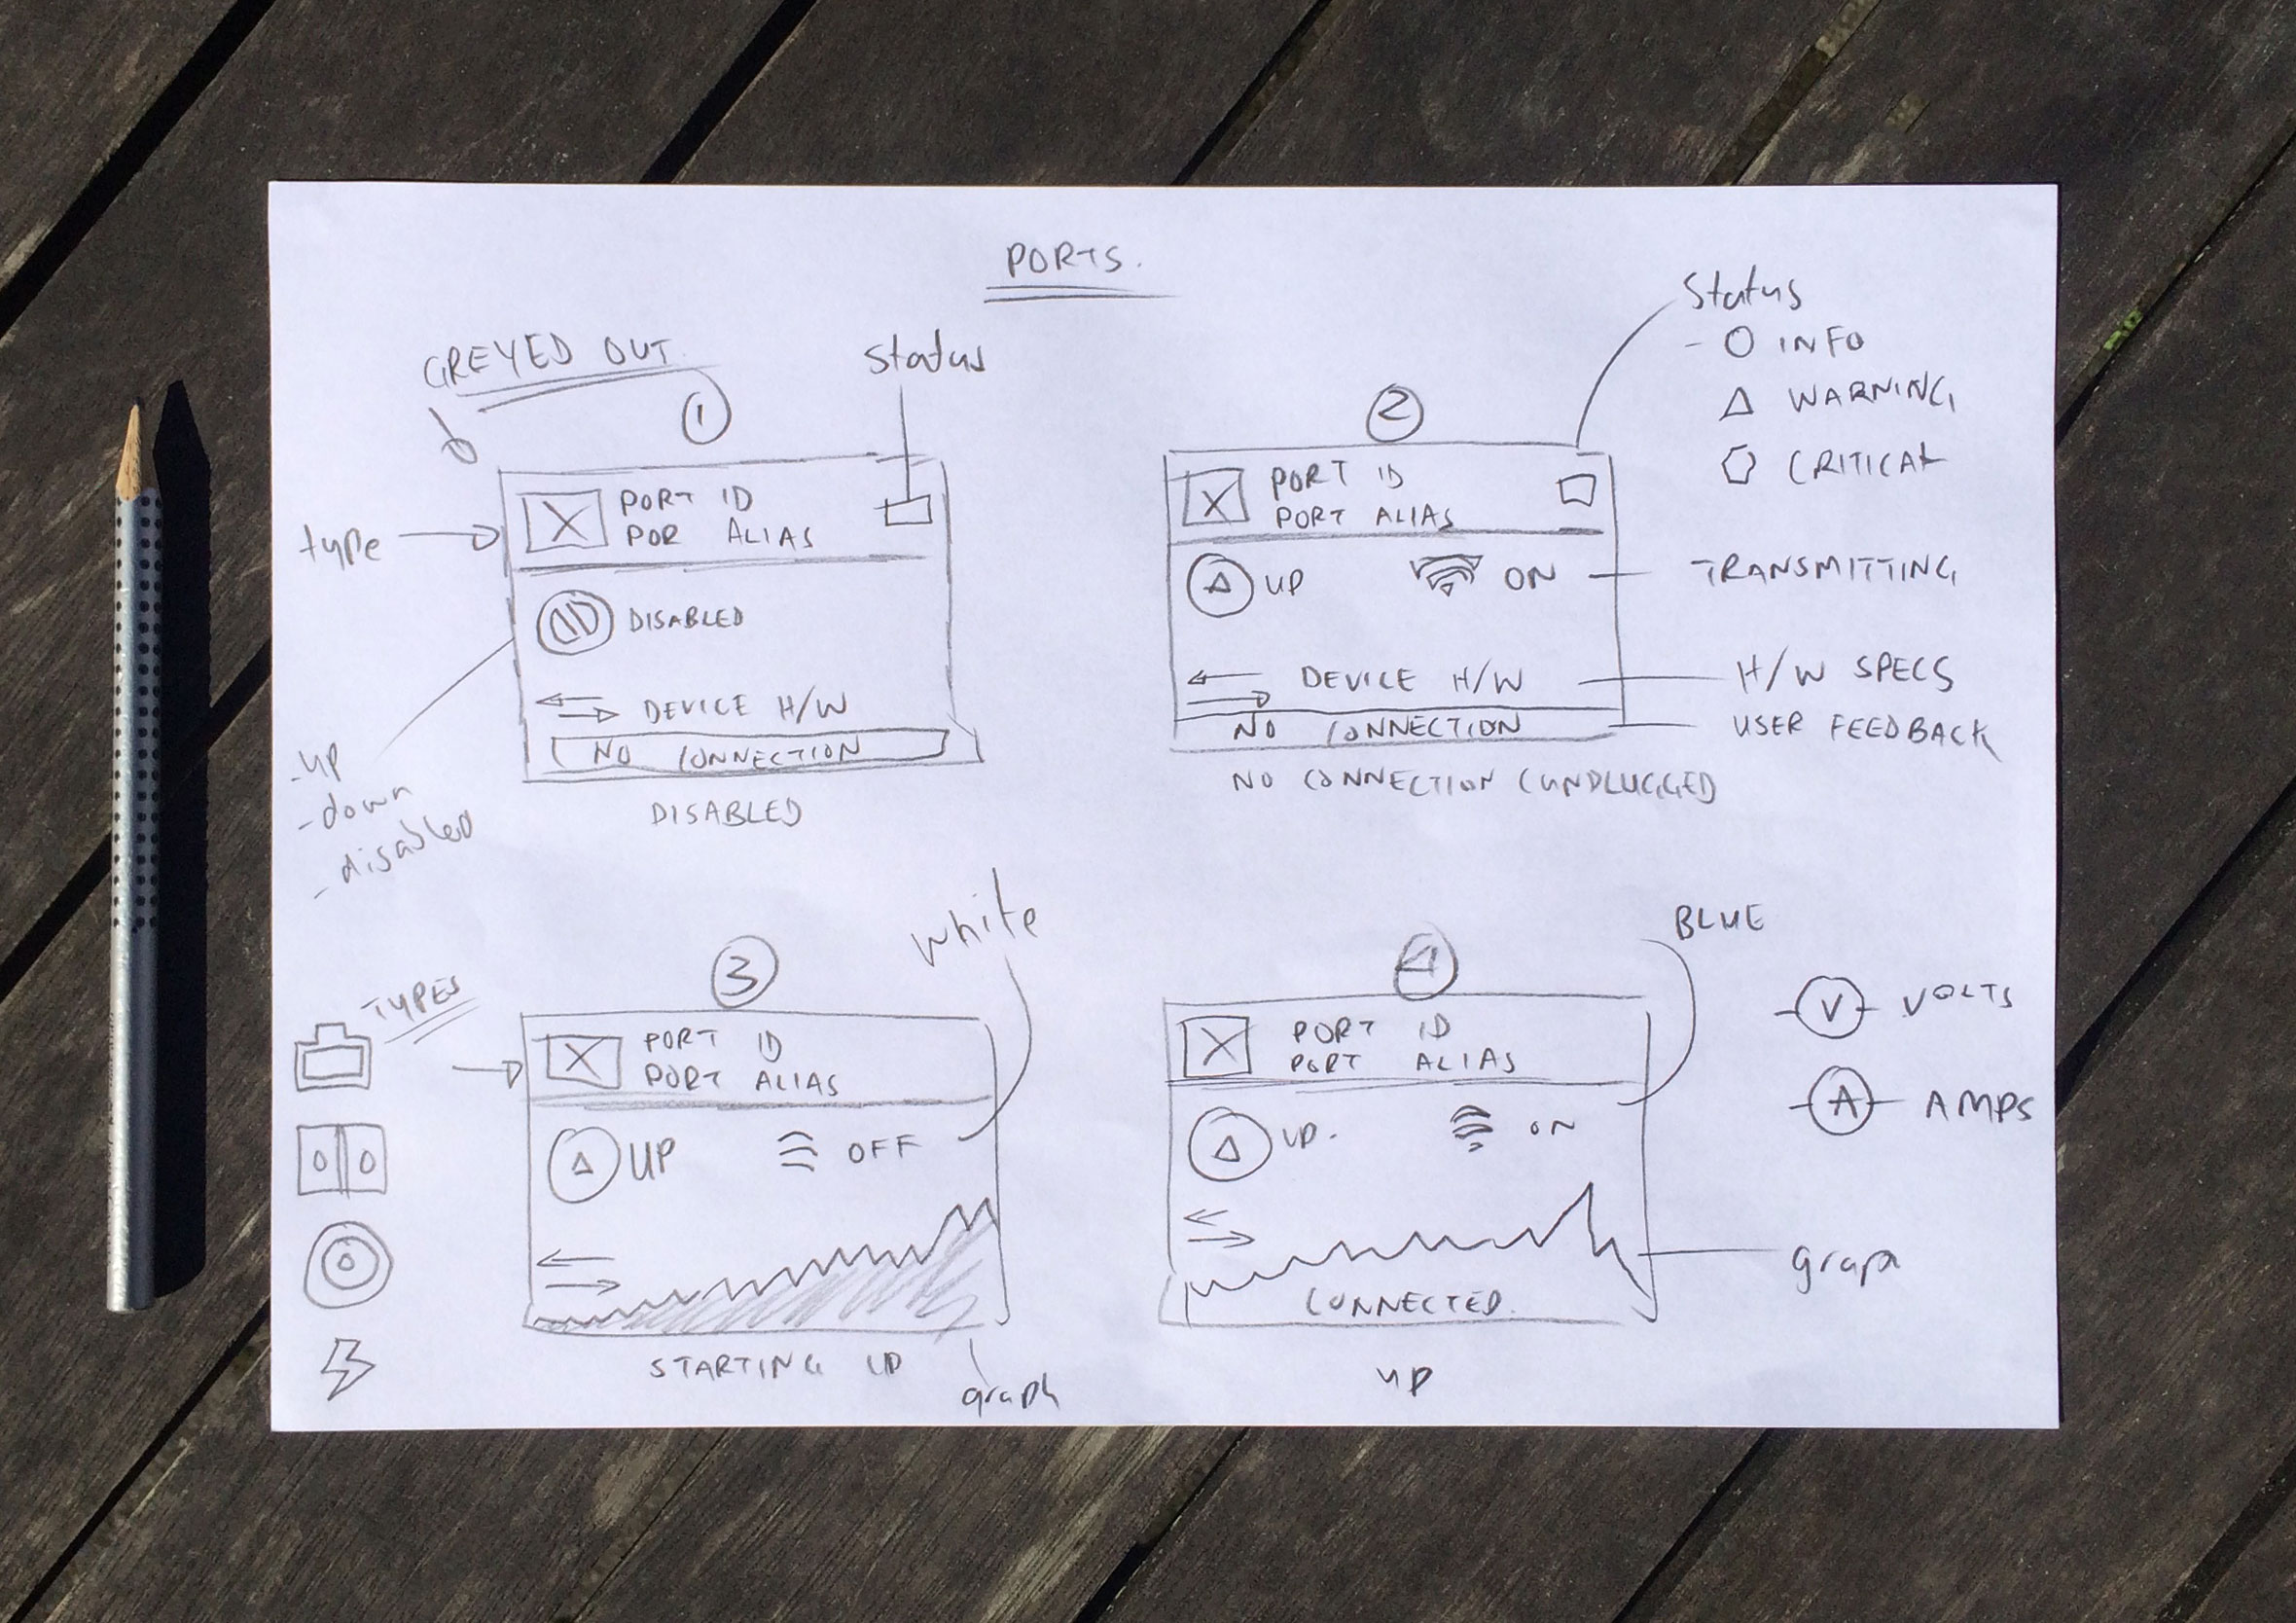 PORTS.
GREYED OUT
1
status
type
PORT ID
POR ALIAS
DISABLED
DEVICE H/W
NO CONNECTION
DISABLED
-up
-down
-disabled
2
Status
- O INFO
WARNING
CRITICAL
PORT ID
PORT ALIAS
UP
ON
TRANSMITTING
DEVICE H/W
H/W SPECS
NO CONNECTION
USER FEEDBACK
NO CONNECTION (UNPLUGGED
TYPES
3
white
PORT ID
PORT ALIAS
UP
OFF
STARTING UP
graph
4
BLUE
PORT ID
PORT ALIAS
UP.
ON
CONNECTED.
UP
V VOLTS
A AMPS
graph